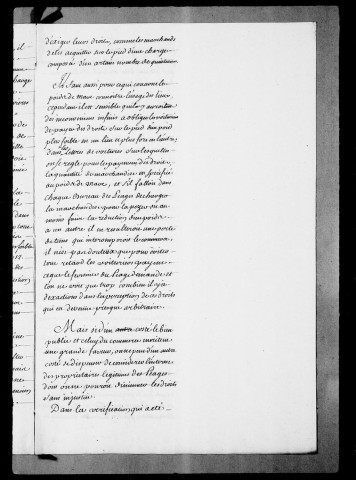 d'exiger leurs droits, comme les marchands
de les acquitter sur le pied d'une charge
composée d'un certain nombre de
Ils sçau aussi pour ce qui concerne le
poids de marc connoitre l'usage des lieux,
cependant il est sensible qu'il y auroit
des inconveniens infinis a obliger les voituriers
de payer des droits sur le pied d'un poid
plus foible en un lieu et plus fort en l'autre,
dans les lettres de voitures sur lesquelles
on se regle pour le payement des droits,
la quantité de marchandise est specifiée
au poids de marc, et s'il falloit dans
chaque Bureau des Peages decharger
la marchandise pour la peser ou au
moins faire la reduction d'un poids
a un autre il en resulteroit une perte
de tems qui interromproit le commerce,
il n'est pas douteux que pour eviter
tout retard les voituriers payent
ce que le fermier du Peage demande et
l'on ne voit que trop combien il y a
d'exactions dans la perception de ces droits
qui en devient presque arbitraire.
Mais si d'un costé le bien
public et celuy du commerce meritent
une grande faveur, on ne peut d'un autre
costé se dispenser de considerer l'interest
des proprietaires legitimes des Peages
dont on ne pourroit diminuer les droits
sans injustice.
Dans la verification qui a été